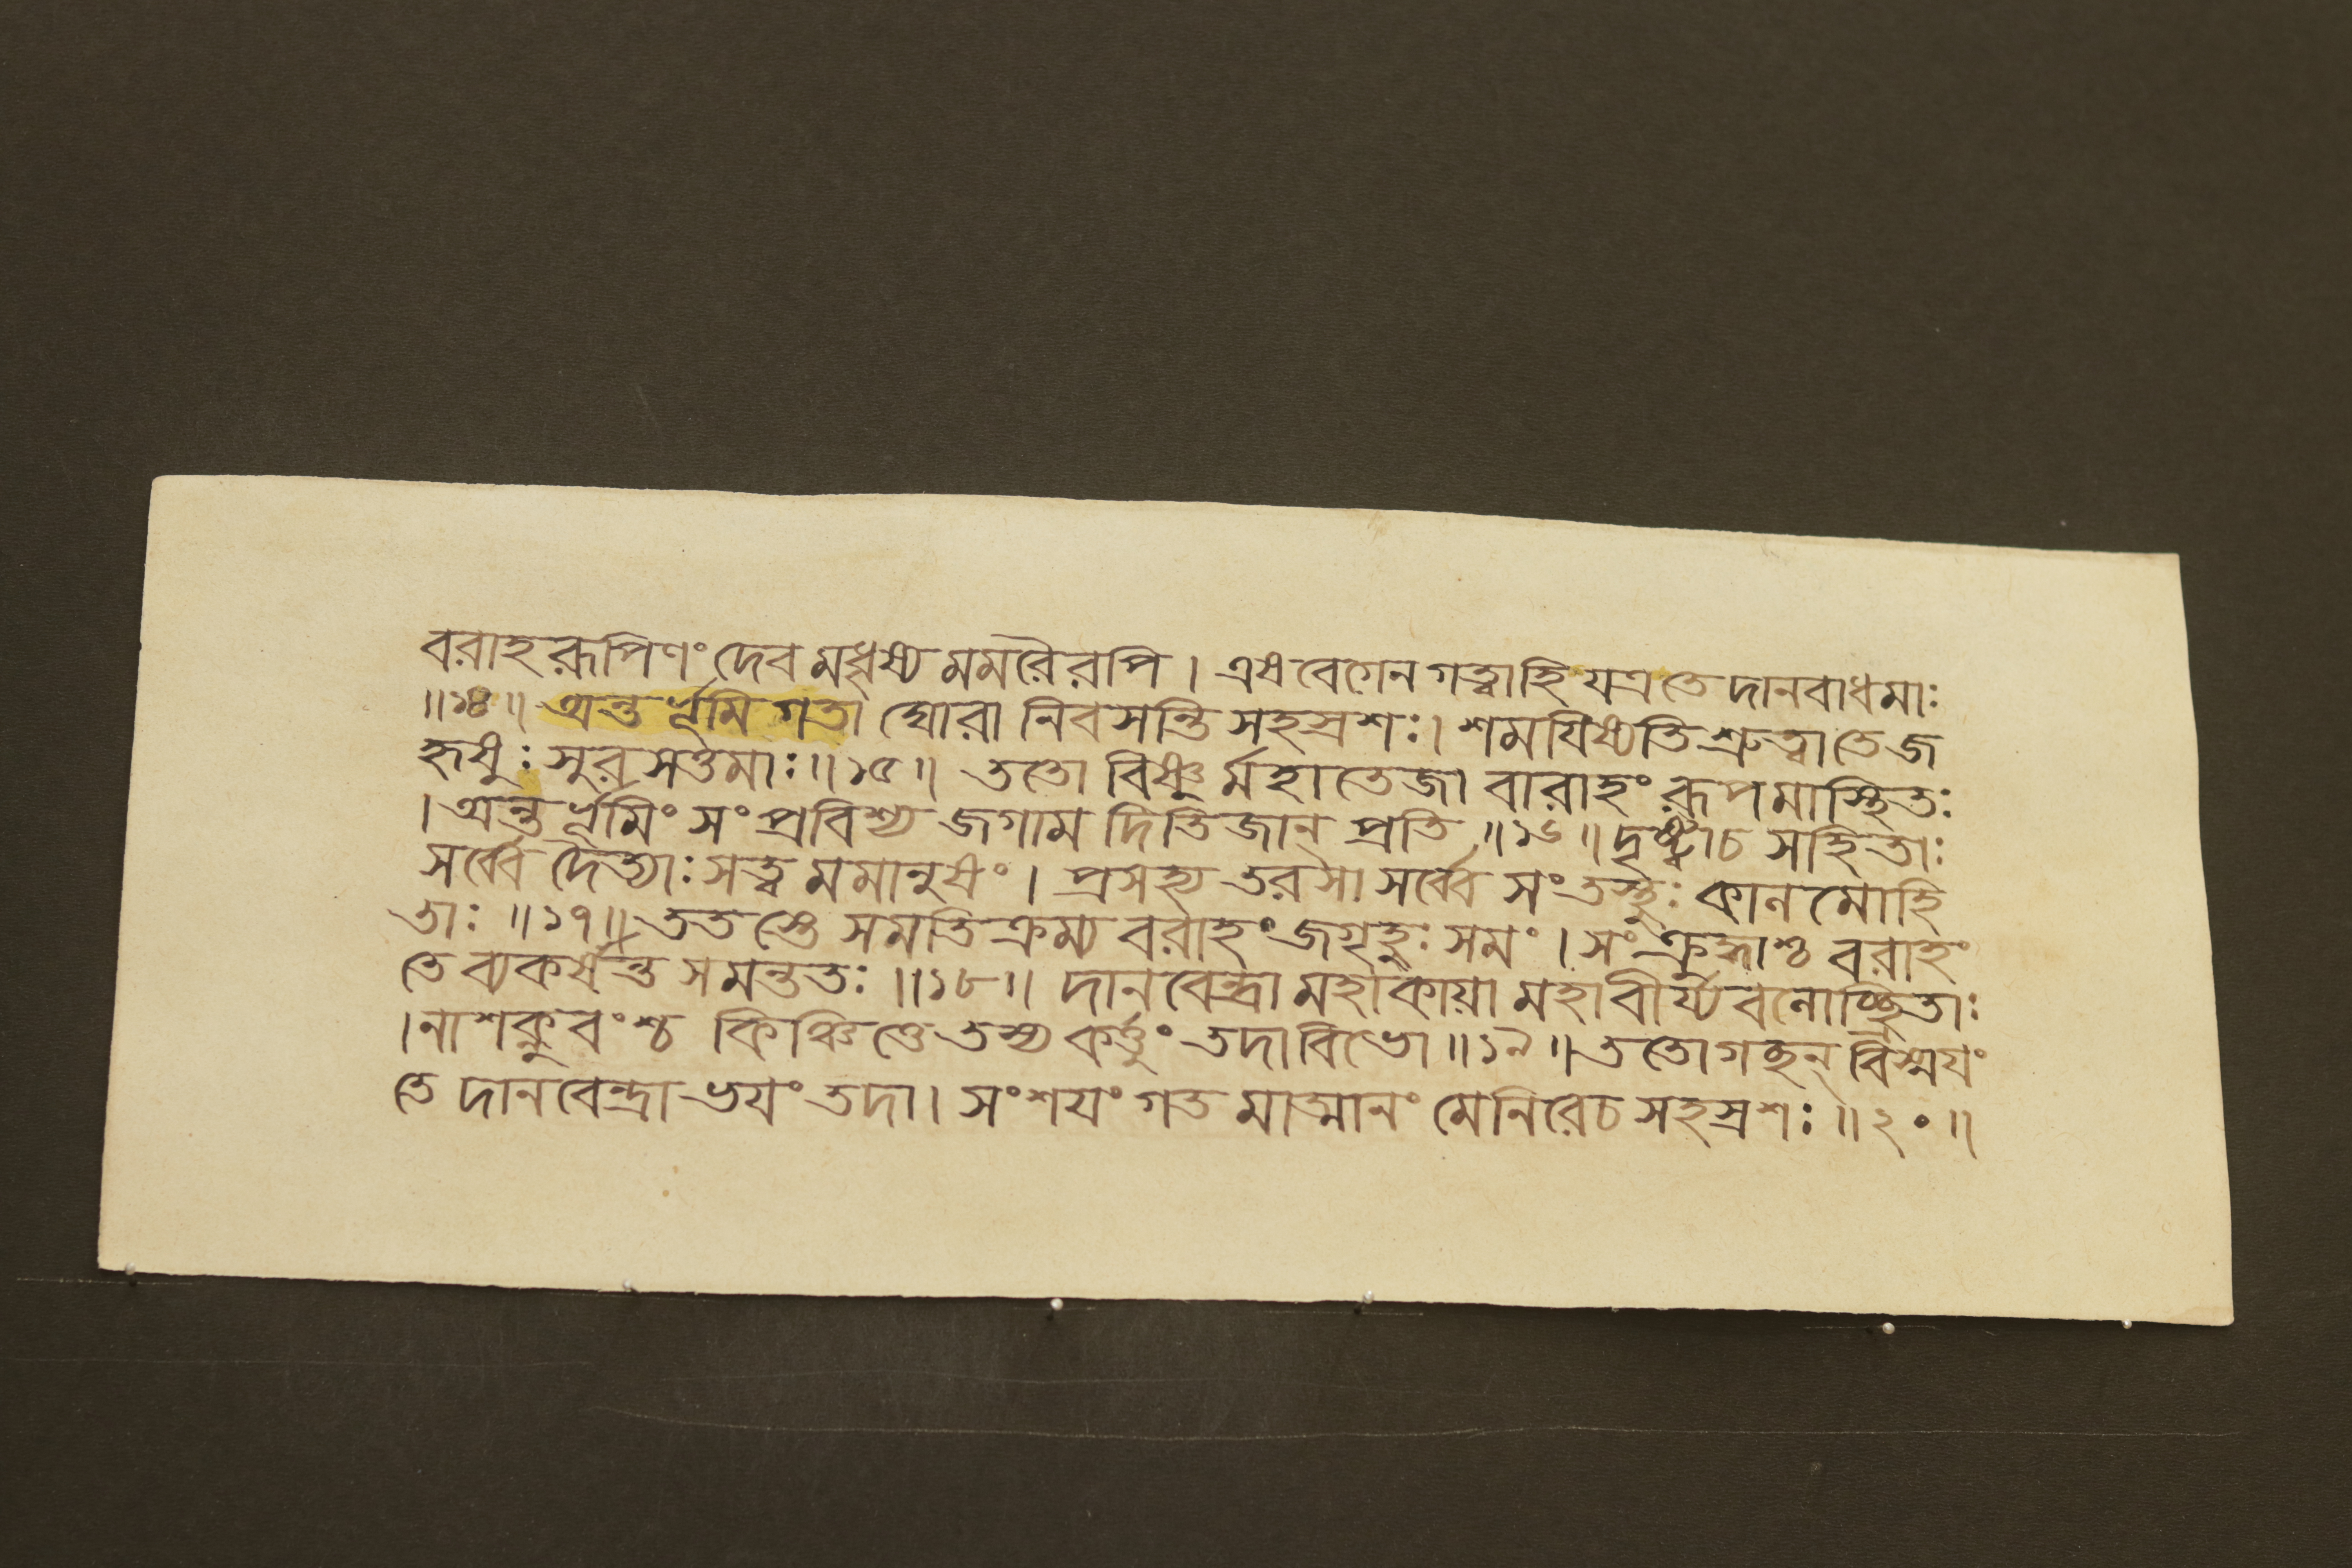 বরাহরূপিণং দেবমধৃষ্যমমরৈরপি। এষ বেগেন গত্বা হি যত্র তে দানবাধমাঃ
॥১৪॥ অন্তর্ভূমিগতা ঘোরা নিবসন্তি সহস্রশঃ। শময়িষ্যতি শ্রুত্বা তে জ
হৃষুঃ সুরসত্তমাঃ॥১৫॥ ততো বিষ্ণুর্মহাতেজা বারাহং রূপমাস্থিতঃ
। অন্তর্ভূমিং সংপ্রবিশ্য জগাম দিতিজান প্রতি॥১৬॥ দৃষ্ট্বা চ সহিতাঃ
সর্ব্বে দৈত্যাঃ সত্ত্বমমানুষং। প্রসহ্য তরসা সর্ব্বে সংতস্থুঃ কালমোহি
তাঃ॥১৭॥ ততস্তে সমতিক্রম্য বরাহং জগৃহুঃ সমং। সংক্রুদ্ধাশ্চ বরাহং
তে ব্যকর্ষন্ত সমন্ততঃ॥১৮॥ দানবেন্দ্রা মহাকায়া মহাবীর্য্যবলোচ্ছ্রিতাঃ
। নাশক্নুবংশ্চ কিঞ্চিত্তে তস্য কর্ত্তুং তদা বিভো॥১৯॥ ততোগচ্ছন্ বিস্ময়ং
তে দানবেন্দ্রা ভয়ং তদা। সংশয়ং গতমাত্মানং মেনিরে চ সহস্রশঃ॥২০॥